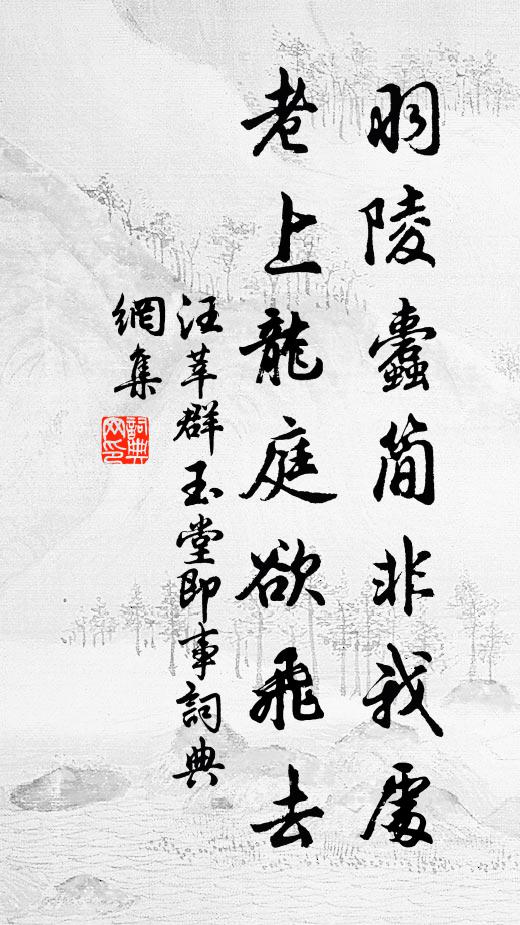 羽陵蠹简非我處
老上龍庭欲飛去
汪莘群玉堂即事詞典
網集
詞典
网印